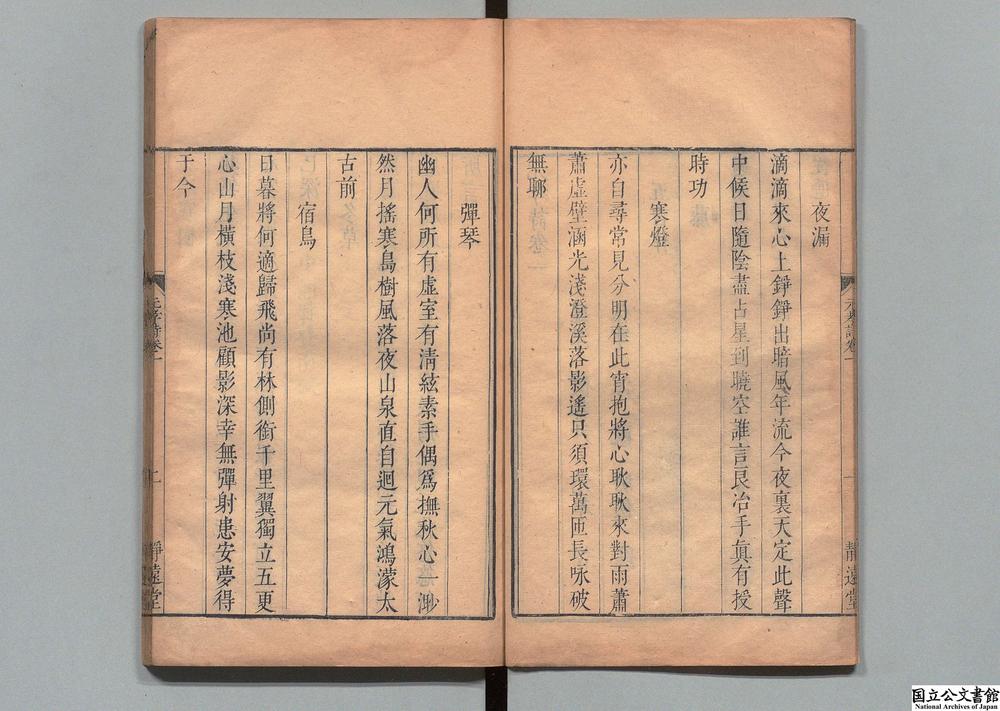 夜漏
滴滴來心上錚錚出暗風年流今夜裏天定此聲
中候日隨陰盡占星到曉空誰言良冶手眞有授
時功
寒燈
亦自尋常見分明在此宵抱將心耿耿來對雨蕭
蕭虛壁涵光淺澄溪落影遙只須環萬匝長咏破
無聊
靜遠堂
彈琴
幽人何所有虛室有清絃素手偶爲撫秋心一渺
然月搖寒島樹風落夜山泉直自迴元氣鴻濛太
古前
宿鳥
日暮將何適歸飛尚有林側銜千里翼獨立五更
心山月橫枝淺寒池顧影深幸無彈射患安夢得
于今
詩卷一
靜遠堂
国立公文書館
National Archives of Japan